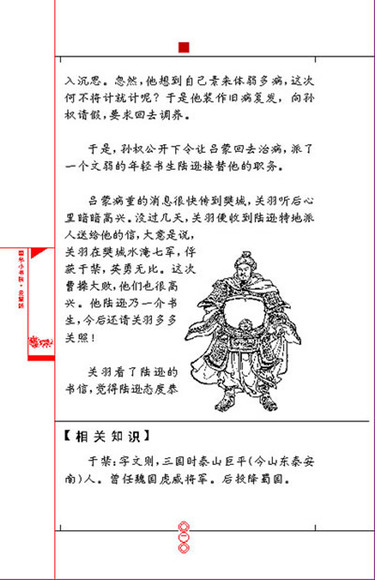 入沉思。忽然，他想到自己素来体弱多病，这次
何不将计就计呢？于是他装作旧病复发，向孙
权请假，要求回去调养。
于是，孙权公开下令让吕蒙回去治病，派了
一个文弱的年轻书生陆逊接替他的职务。
吕蒙病重的消息很快传到樊城，关羽听后心
里暗暗高兴。没过几天，关羽便收到陆逊特地派
人送给他的信，大意是说，
关羽在樊城水淹七军，俘
获于禁，英勇无比。这次
曹操大败，他们也很高
兴。他陆逊乃一个书
生，今后还请关羽多多
关照！
关羽看了陆逊的
书信，觉得陆逊态度恭
【相关知识】
于禁：字文则，三国时泰山巨平（今山东泰安
南）人。曾任魏国虎威将军。后投降蜀国。